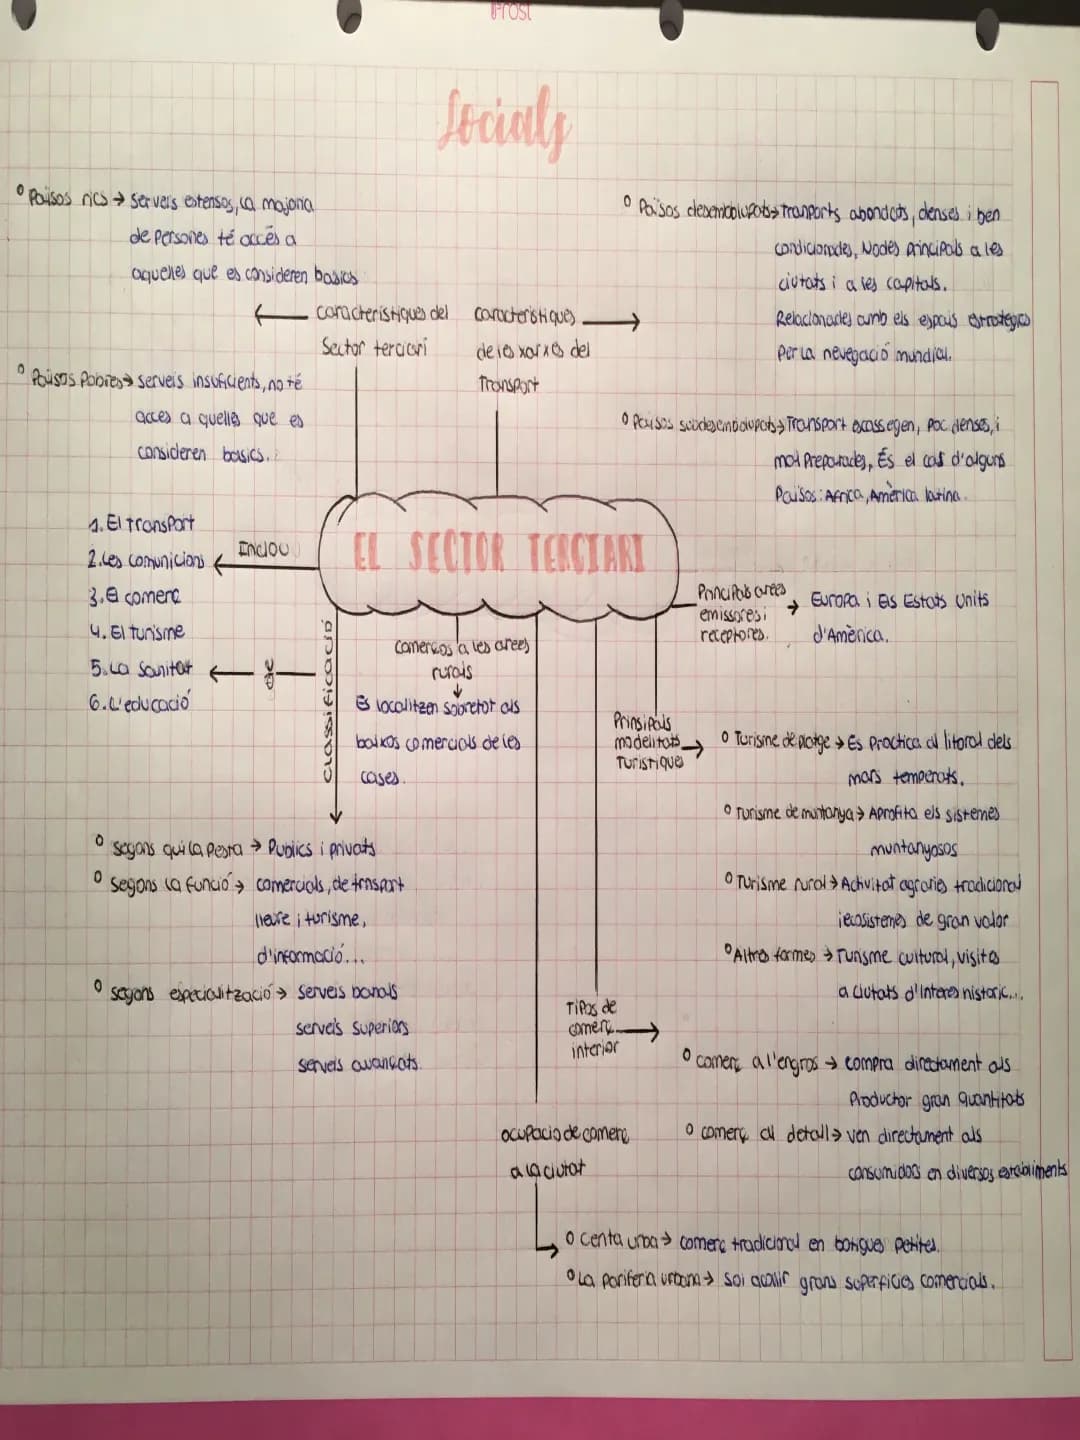 Socials
° Països rics → Serveis extensos, la majoria
de persones té accés a
aquelles que es consideren basics
← característiques del
Sector terciari
° Països Pobres → serveis insuficients, no té
acces a quelles que es
consideren basics.
característiques →
de les xarxes del
Transport
° Països desembolupats → Tranports abondats, denses i ben
condicionades, Nodes principals a les
ciutats i a les capitals.
Relacionades amb els espais estrategics
per la nevegació mundial.
° Països subdesembolupats → Transport escassegen, poc denses, i
mal Preparades, És el cas d'alguns
Països: Africa, Amèrica latina.
EL SECTOR TERCIARI
INCLOU
1. El transport
2. Les comunicions ←
3. El comerç
4. El turisme
5. La Sanitat ←
6. L'educació
Principals arees
emissores i →
receptores.
Europa i Els Estats Units
d'Amèrica.
classificació
comerços a les arees
rurals
↓
Es localitzen sobretot als
baixos comercials de les
cases.
Prinsipals
modelitats →
Turistiques
° Turisme de platge → Es Practica al litoral dels
mars temperats.
° Turisme de muntanya → Aprofita els sistemes
muntanyosos
° Turisme rural → Activitat agraries tradicional
i ecosistemes de gran valor
° Altres formes → Turisme cultural, visites
a ciutats d'interes historic...
° Segons qui la Pestra → Publics i privats
° Segons la funció → comercials, de trnsport
lleure i turisme,
d'informació...
° segons especialització → Serveis banals
serveis superiors
serveis avançats.
Tipos de
comerç →
interior
° comerç a l'engros → compra directament als
Productor gran quantitats
° comerç al detall → ven directament als
consumidors en diversos establiments
ocupacio de comerç
a la ciutat
° centa urba → comerç tradicional en botigues petites.
° La pariferia urbana → Sol acollir grans superficies comercials.